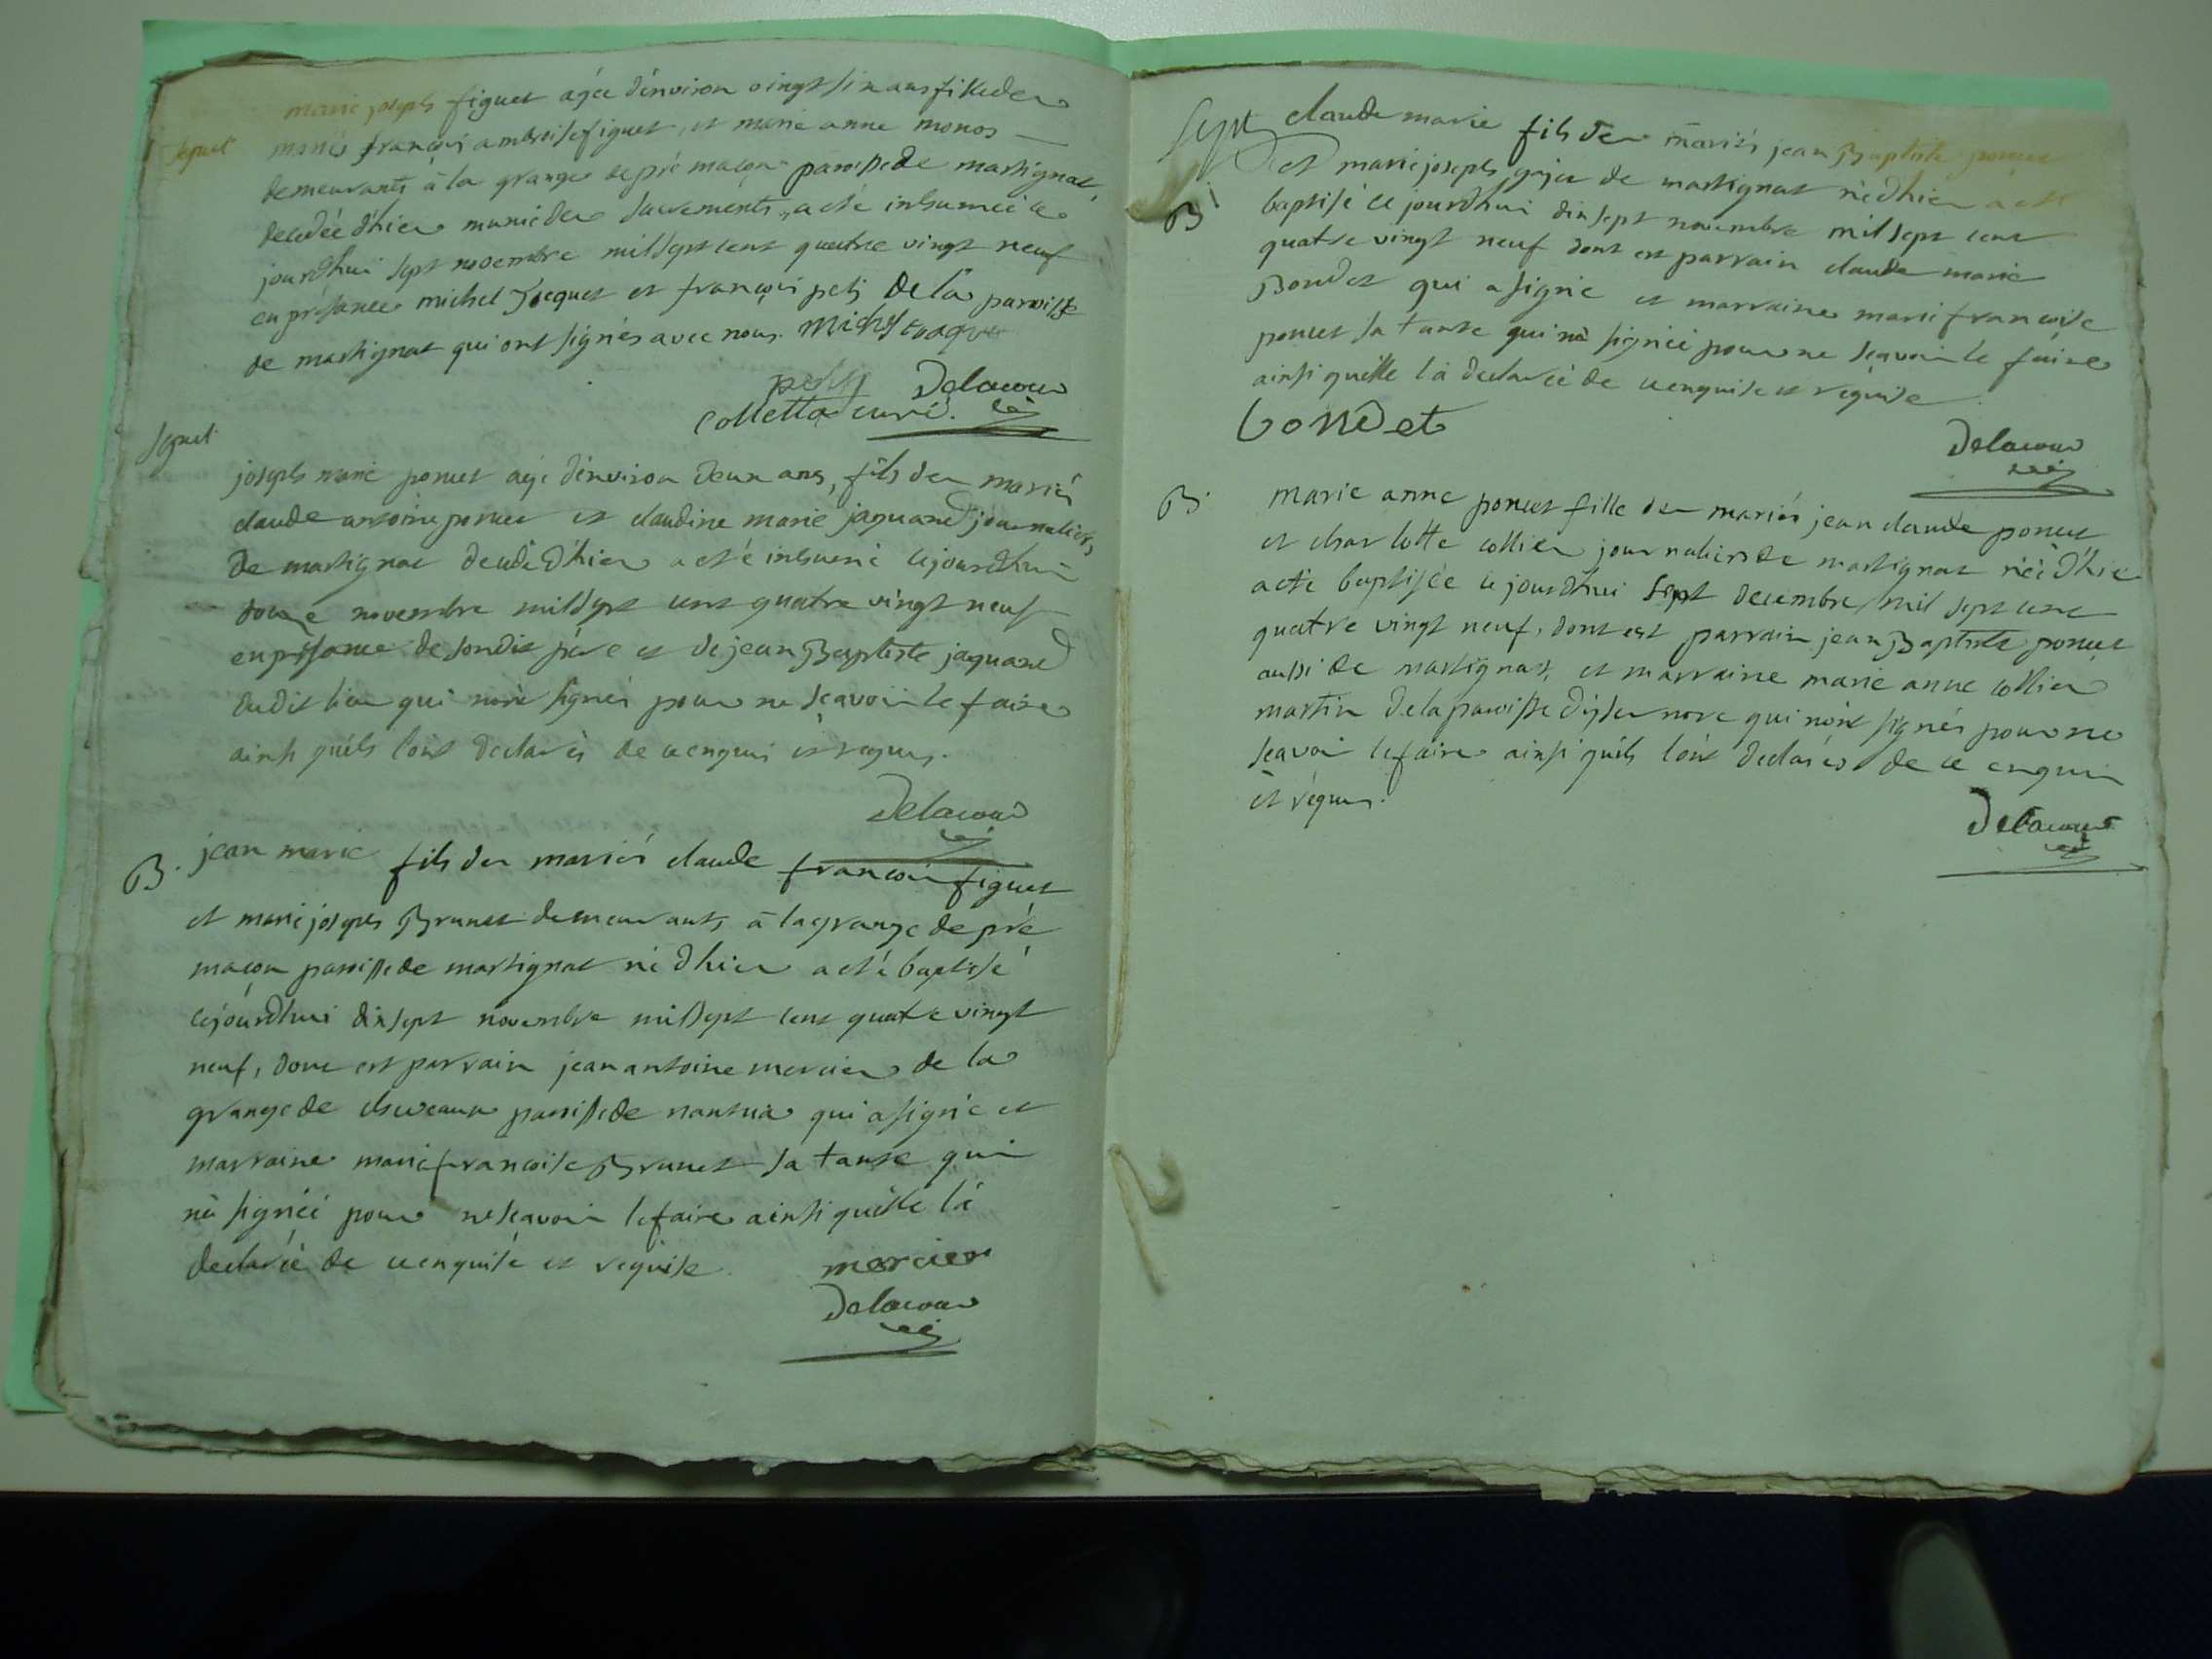 marie joseph figuet agée d'environ vingt six ans fille des
sepult mariés françois ambroise figuet, et marie anne monos
demeurants à la grange de pré maçon paroisse de martignat,
decedée d'hier munie des sacrements, a eté inhumée ce
jourd'hui sept novembre mil sept cent quatre vingt neuf
en présance michel Jocquet et françois petj de la paroisse
de martignat qui ont signés avec nous. Michel
petit Delacour
Colletta curé.
Sepult
joseph marie poncet agé d'environ deux ans, fils des mariés
claude antoine poncet et claudine marie jaquand journaliers
de martignat decedé d'hier a eté inhumé cejourd'hui
douze novembre mil sept cent quatre vingt neuf
en présance de sondit père et de jean Baptiste jaquand
dudit lieu qui n'ont signés pour ne scavoir le faire
ainsi qu'ils l'ont declarés de ce enquis et requis.
Delacour
B. jean marie fils des mariés claude francois figuet
et marie joseph Brunet demeurants à la grange de pré
maçon paroisse de martignat né d'hier a eté baptisé
cejourd'hui dix sept novembre mil sept cent quatre vingt
neuf, dont est parrain jean antoine mercier de la
grange de cheveaux paroisse de nantua qui a signé et
marraine marie francoise Brunet sa tante qui
n'a signée pour ne scavoir le faire ainsi qu'elle l'a
declarée de ce enquise et requise. mercier
Delacour
Sept claude marie fils des mariés jean Baptiste poncet
et marie joseph gojer de martignat né d'hier a eté
B baptisé ce jourd'hui dix sept novembre mil sept cent
quatre vingt neuf dont est parrain claude marie
Bondet qui a signé et marraine marie francoise
poncet sa tante qui n'a signée pour ne scavoir le faire
ainsi quelle l'a declarée de ce enquise et requise
bondet
Delacour
B. Marie anne poncet fille des mariés jean claude poncet
et charlotte collier journaliers de martignat née d'hier
a eté baptisée ce jourd'hui sept decembre mil sept cent
quatre vingt neuf, dont est parrain jean Baptiste poncet
aussi de martignat, et marraine marie anne collier
martin de la paroisse d'isernore qui n'ont signés pour ne
scavoir le faire ainsi qu'ils l'ont declarés de ce enquis
et requis.
Delacour